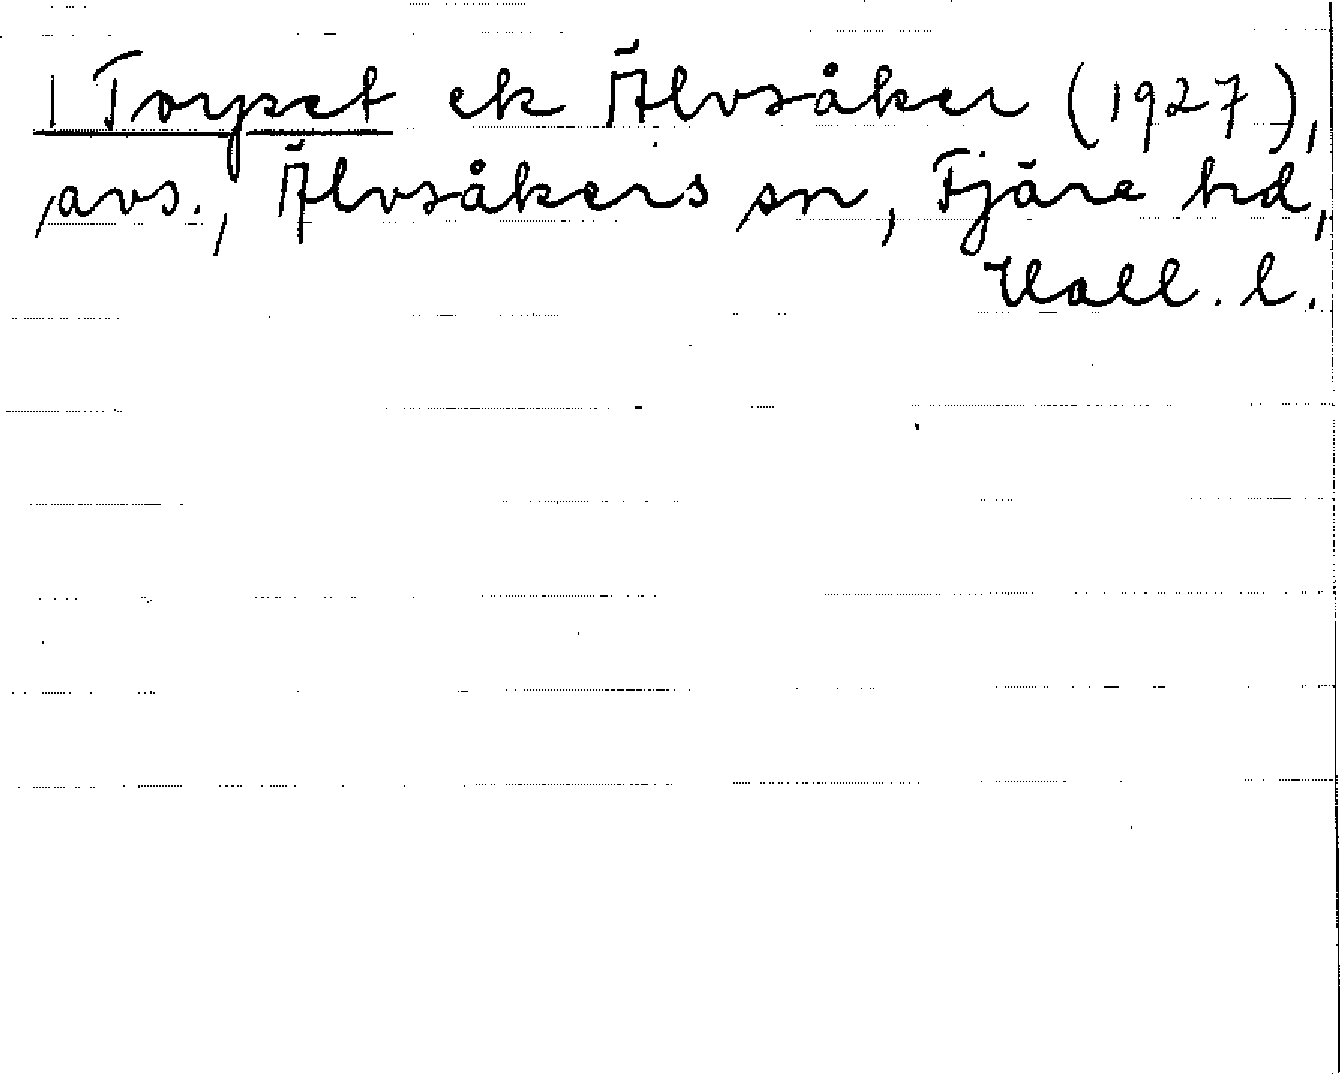 1 Torpet ek Älvsåker (1927),
avs., Älvsåkers sn, Fjäre hd,
Hall. l.